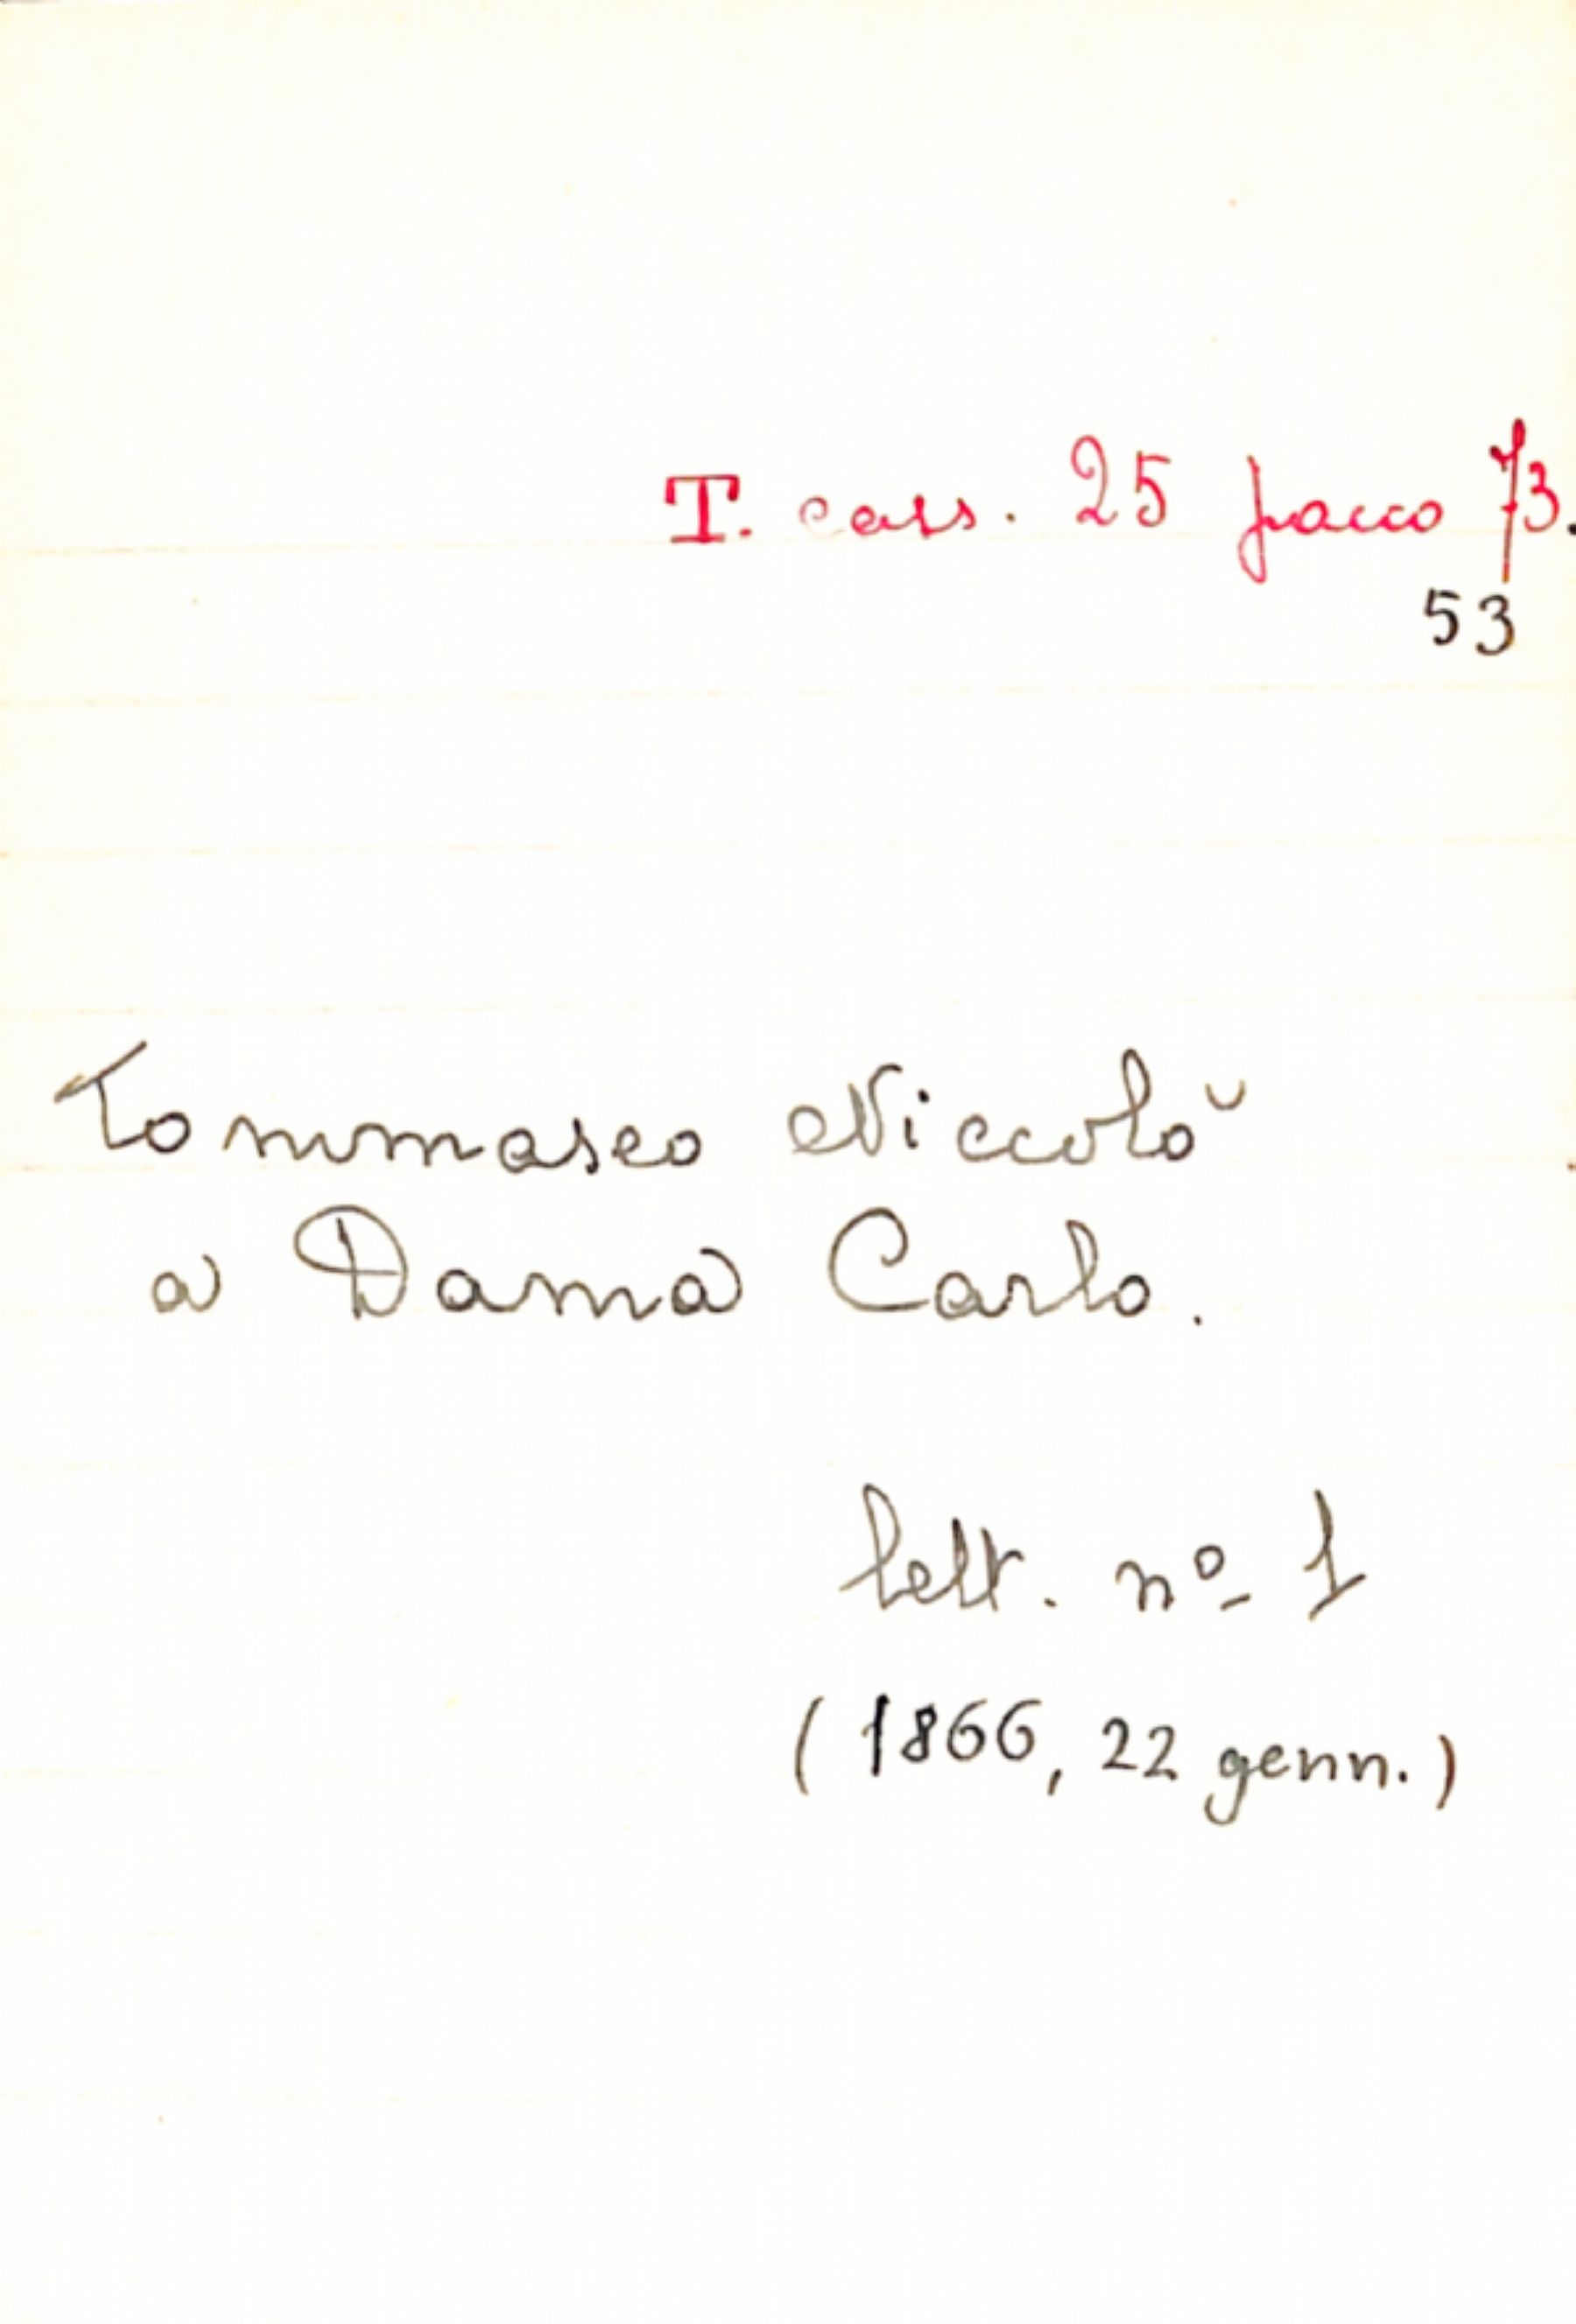 T. cass. 25 pacco 73.
53
Tommaseo Niccolò
a Dama Carlo.
lett. nº 1
(1866, 22 genn.)